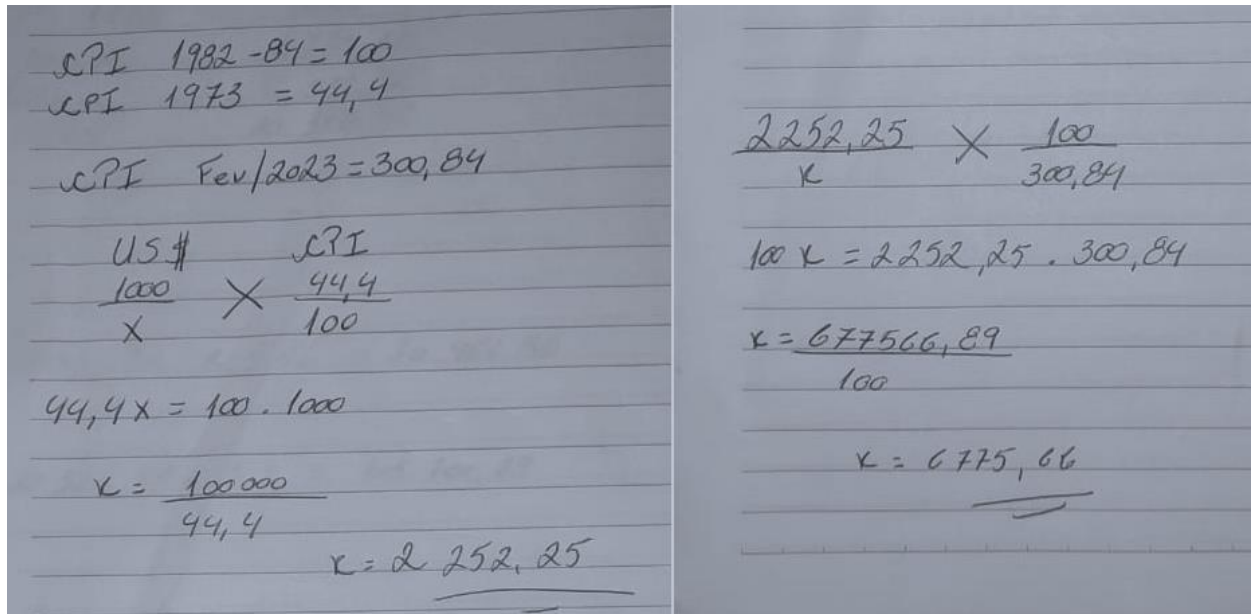 CPI 1982-84 = 100
CPI 1973 = 44,4
CPI Fev/2023 = 300,84
US$ CPI
1000 44,4
X
X 100
44,4X = 100 . 1000
X = 100000
44,4
X = 2 252,25
2252,25 X 100
X 300,84
100 X = 2252,25 . 300,84
X = 677566,89
100
X = 6775,66